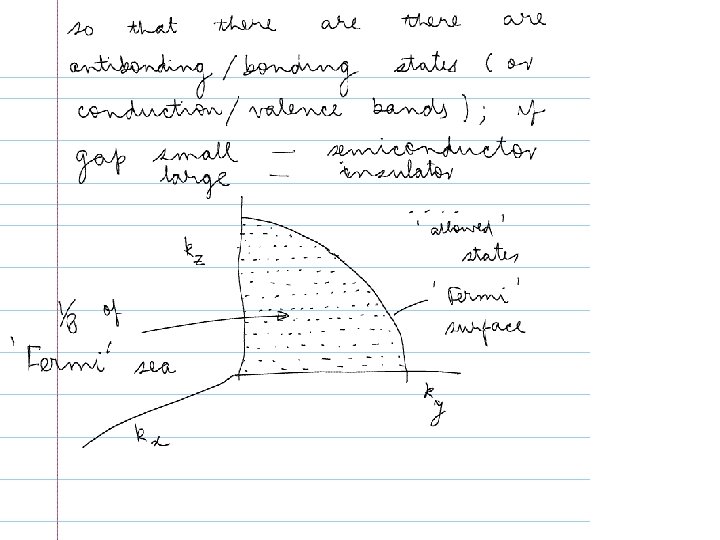 so that there are there are
antibonding/bonding states (or
conduction/valence bands); if
gap small — semiconductor
large — insulator
'allowed'
states
k_z
'Fermi'
surface
1/8 of
'Fermi' sea
k_y
k_x